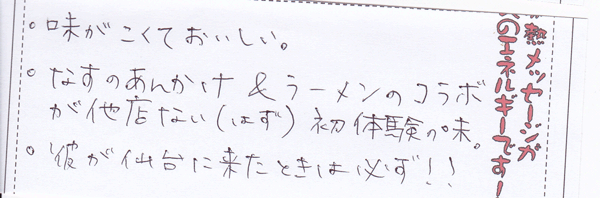 。味がこくておいしい。
。なすのあんかけ & ラーメンのコラボ
が他店ない(はず)初体験の味。
。彼が仙台に来たときは必ず!!
熱メッセージが
のエネルギーです!